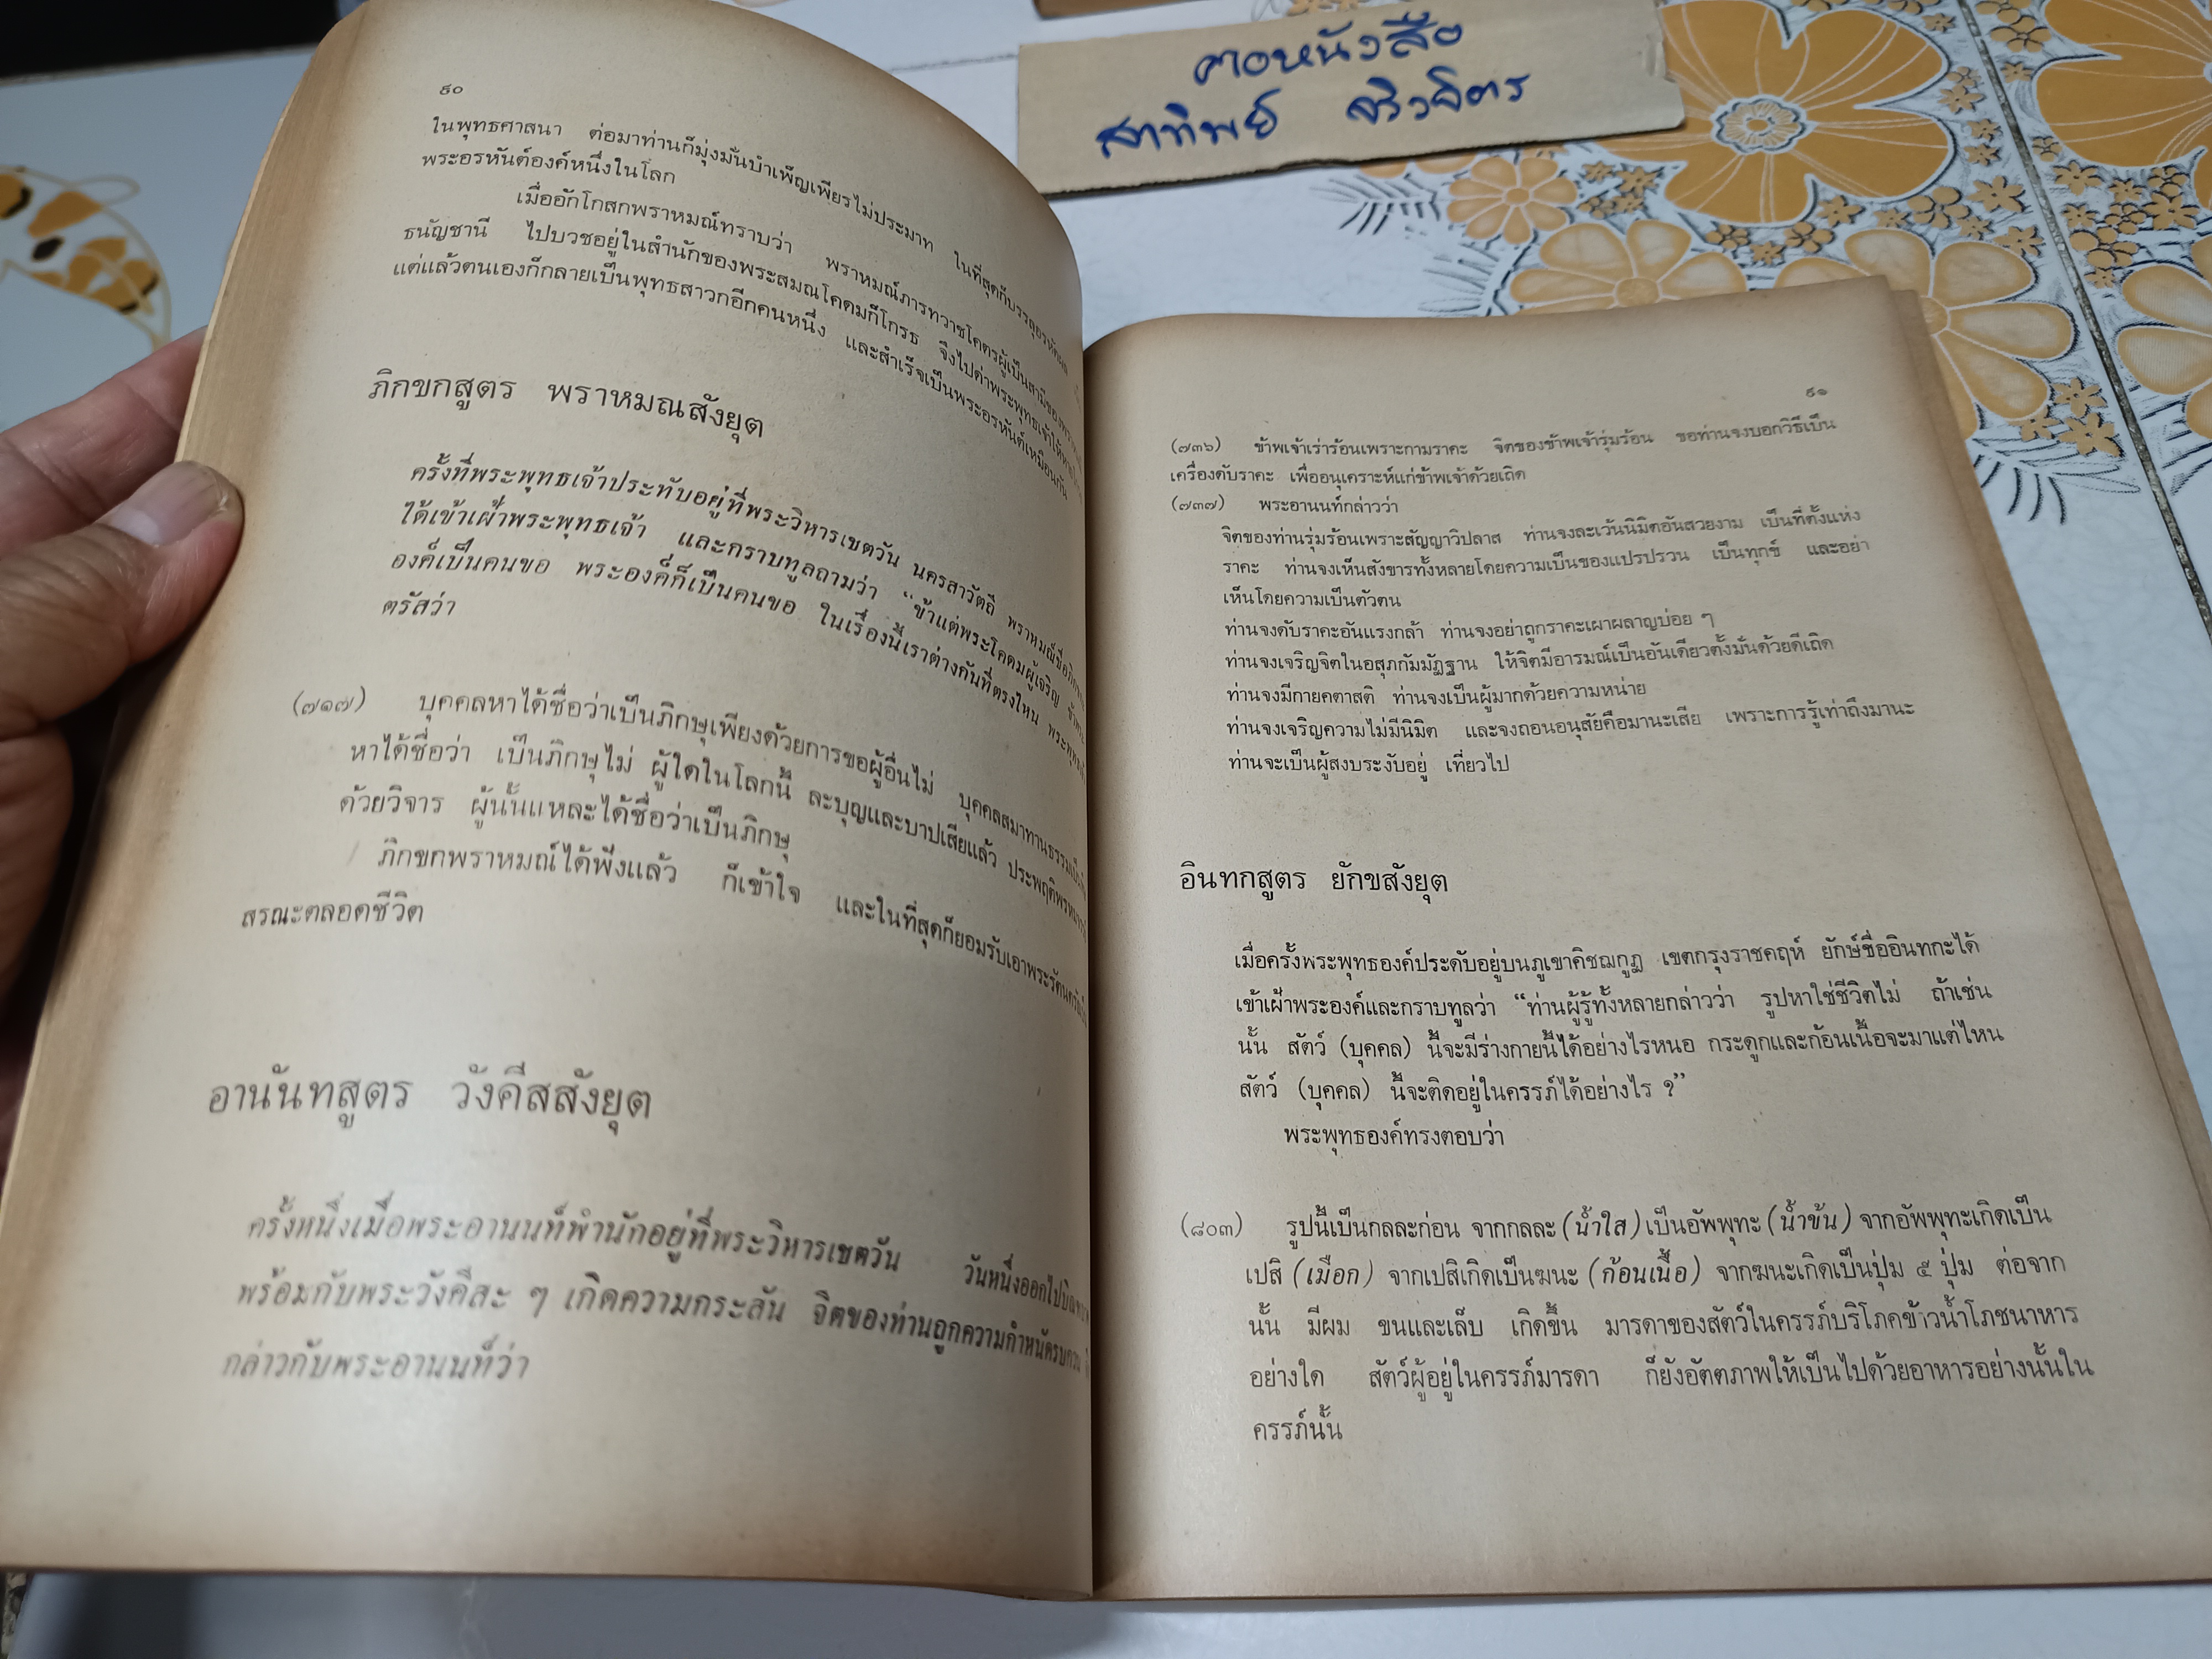 คอหนังสือ
๙๐
ในพุทธศาสนา ต่อมาท่านก็มุ่งมั่นบำเพ็ญเพียรไม่ประมาท ในที่สุดก็บรรลุอรหัตผล
พระอรหันต์องค์หนึ่งในโลก
เมื่ออักโกสกพราหมณ์ทราบว่า พราหมณ์ภารทวาชโคตรผู้เป็นสามีของ
ธนัญชานี ไปบวชอยู่ในสำนักของพระสมณโคดมก็โกรธ จึงไปด่าพระพุทธเจ้า
แต่แล้วตนเองก็กลายเป็นพุทธสาวกอีกคนหนึ่ง และสำเร็จเป็นพระอรหันต์เหมือนกัน
ภิกขกสูตร พราหมณสังยุต
ครั้งที่พระพุทธเจ้าประทับอยู่ที่พระวิหารเชตวัน นครสาวัตถี พราหมณ์ชื่อ
ได้เข้าเฝ้าพระพุทธเจ้า และกราบทูลถามว่า “ข้าแต่พระโคดมผู้เจริญ
องค์เป็นคนขอ พระองค์ก็เป็นคนขอ ในเรื่องนี้เราต่างกันที่ตรงไหน
ตรัสว่า
(๗๑๗) บุคคลหาได้ชื่อว่าเป็นภิกษุเพียงด้วยการขอผู้อื่นไม่ บุคคลสมาทานธรรม
หาได้ชื่อว่า เป็นภิกษุไม่ ผู้ใดในโลกนี้ ละบุญและบาปเสียแล้ว ประพฤติ
ด้วยวิจาร ผู้นั้นแหละได้ชื่อว่าเป็นภิกษุ
ภิกขกพราหมณ์ได้ฟังแล้ว ก็เข้าใจ และในที่สุดก็ยอมรับเอาพระรัตนตรัย
สรณะตลอดชีวิต
อานันทสูตร วังคีสสังยุต
ครั้งหนึ่งเมื่อพระอานนท์พำนักอยู่ที่พระวิหารเชตวัน วันหนึ่งออกไป
พร้อมกับพระวังคีสะ ๆ เกิดความกระสัน จิตของท่านถูกความกำหนัดรบกวน
กล่าวกับพระอานนท์ว่า
๙๑
(๗๓๖) ข้าพเจ้าเร่าร้อนเพราะกามราคะ จิตของข้าพเจ้ารุ่มร้อน ขอท่านจงบอกวิธีเป็น
เครื่องดับราคะ เพื่ออนุเคราะห์แก่ข้าพเจ้าด้วยเถิด
(๗๓๗) พระอานนท์กล่าวว่า
จิตของท่านรุ่มร้อนเพราะสัญญาวิปลาส ท่านจงละเว้นนิมิตอันสวยงาม เป็นที่ตั้งแห่ง
ราคะ ท่านจงเห็นสังขารทั้งหลายโดยความเป็นของแปรปรวน เป็นทุกข์ และอย่า
เห็นโดยความเป็นตัวตน
ท่านจงดับราคะอันแรงกล้า ท่านจงอย่าถูกราคะเผาผลาญบ่อย ๆ
ท่านจงเจริญจิตในอสุภกัมมัฏฐาน ให้จิตมีอารมณ์เป็นอันเดียวตั้งมั่นด้วยดีเถิด
ท่านจงมีกายคตาสติ ท่านจงเป็นผู้มากด้วยความหน่าย
ท่านจงเจริญความไม่มีนิมิต และจงถอนอนุสัยคือมานะเสีย เพราะการรู้เท่าถึงมานะ
ท่านจะเป็นผู้สงบระงับอยู่ เที่ยวไป
อินทกสูตร ยักขสังยุต
เมื่อครั้งพระพุทธองค์ประดับอยู่บนภูเขาคิชฌกูฏ เขตกรุงราชคฤห์ ยักษ์ชื่ออินทกะได้
เข้าเฝ้าพระองค์และกราบทูลว่า “ท่านผู้รู้ทั้งหลายกล่าวว่า รูปหาใช่ชีวิตไม่ ถ้าเช่น
นั้น สัตว์ (บุคคล) นี้จะมีร่างกายนี้ได้อย่างไรหนอ กระดูกและก้อนเนื้อจะมาแต่ไหน
สัตว์ (บุคคล) นี้จะติดอยู่ในครรภ์ได้อย่างไร ?”
พระพุทธองค์ทรงตอบว่า
(๘๐๓) รูปนี้เป็นกลละก่อน จากกลละ (น้ำใส) เป็นอัพพุทะ (น้ำข้น) จากอัพพุทะเกิดเป็น
เปสิ (เมือก) จากเปสิเกิดเป็นฆนะ (ก้อนเนื้อ) จากฆนะเกิดเป็นปุ่ม ๕ ปุ่ม ต่อจาก
นั้น มีผม ขนและเล็บ เกิดขึ้น มารดาของสัตว์ในครรภ์บริโภคข้าวน้ำโภชนาหาร
อย่างใด สัตว์ผู้อยู่ในครรภ์มารดา ก็ยังอัตตภาพให้เป็นไปด้วยอาหารอย่างนั้นใน
ครรภ์นั้น